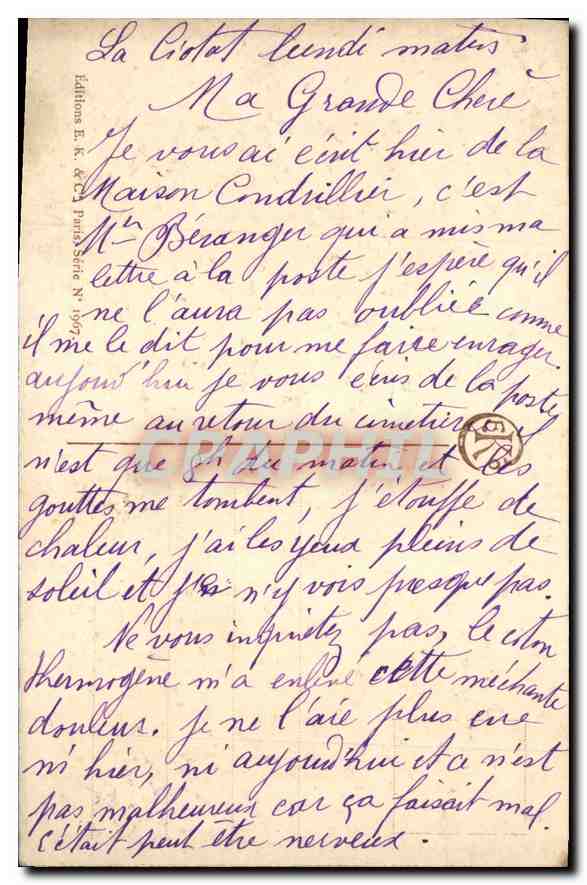 La Ciotat lundi matin
Ma Grande Cherè
Je vous ai écrit hier de la
Maison Condrillier, c'est
Mr Béranger qui a mis ma
lettre à la poste j'espère qu'il
ne l'aura pas oubliée comme
il me le dit pour me faire enrager.
aujourd'hui je vous écris de la poste
même au retour du cimetière, il
n'est que 8h du matin et les
gouttes me tombent, j'étouffe de
chaleur, j'ai les yeux pleins de
soleil et je n'y vois presque pas.
Ne vous inquietez pas, le coton
thermogène m'a enlevé cette méchante
douleur. je ne l'aie plus eue
ni hier, ni aujourd'hui et ce n'est
pas malheureux car ça faisait mal.
c'était peut être nerveux.
Éditions E. K. & Cie Paris, Série N° 1967
CPAPHIL